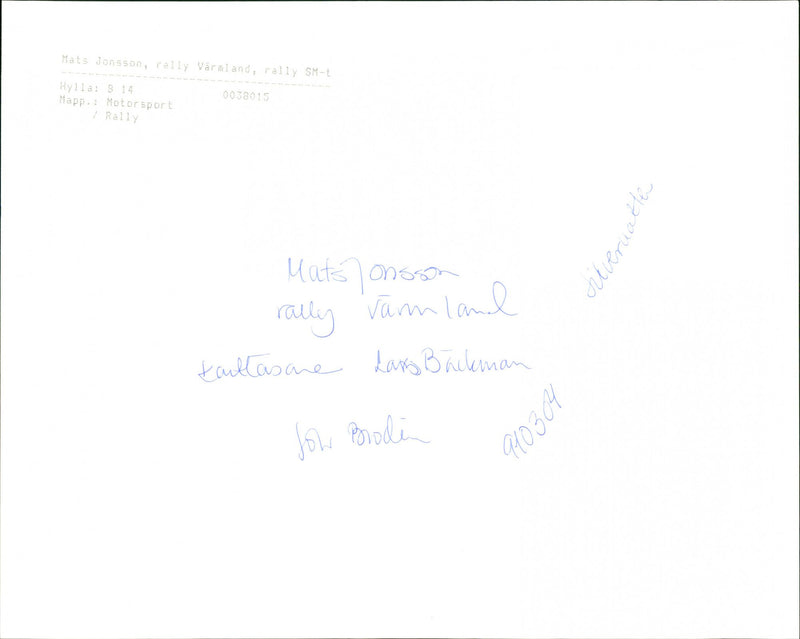 Mats Jonsson, rally Värmland, rally SM-t
Hylla: B 14 0038015
Mapp.: Motorsport
/ Rally
silvernatta
Mats Jonsson
rally Värmland
Lars Bäckman
Brodin
910304